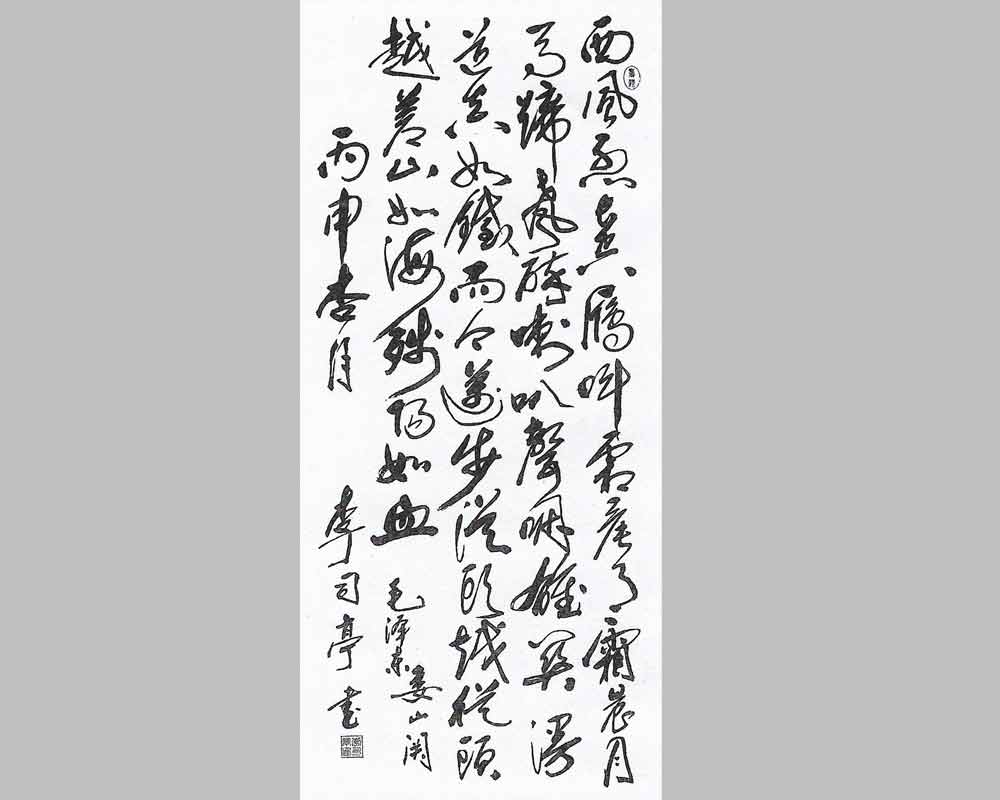 西風烈長空雁叫霜晨月霜晨月
馬蹄聲碎喇叭聲咽雄関漫
道真如鐵而今邁步從頭越從頭
越蒼山如海殘陽如血 毛泽东娄山関
丙申杏月 李司亭書